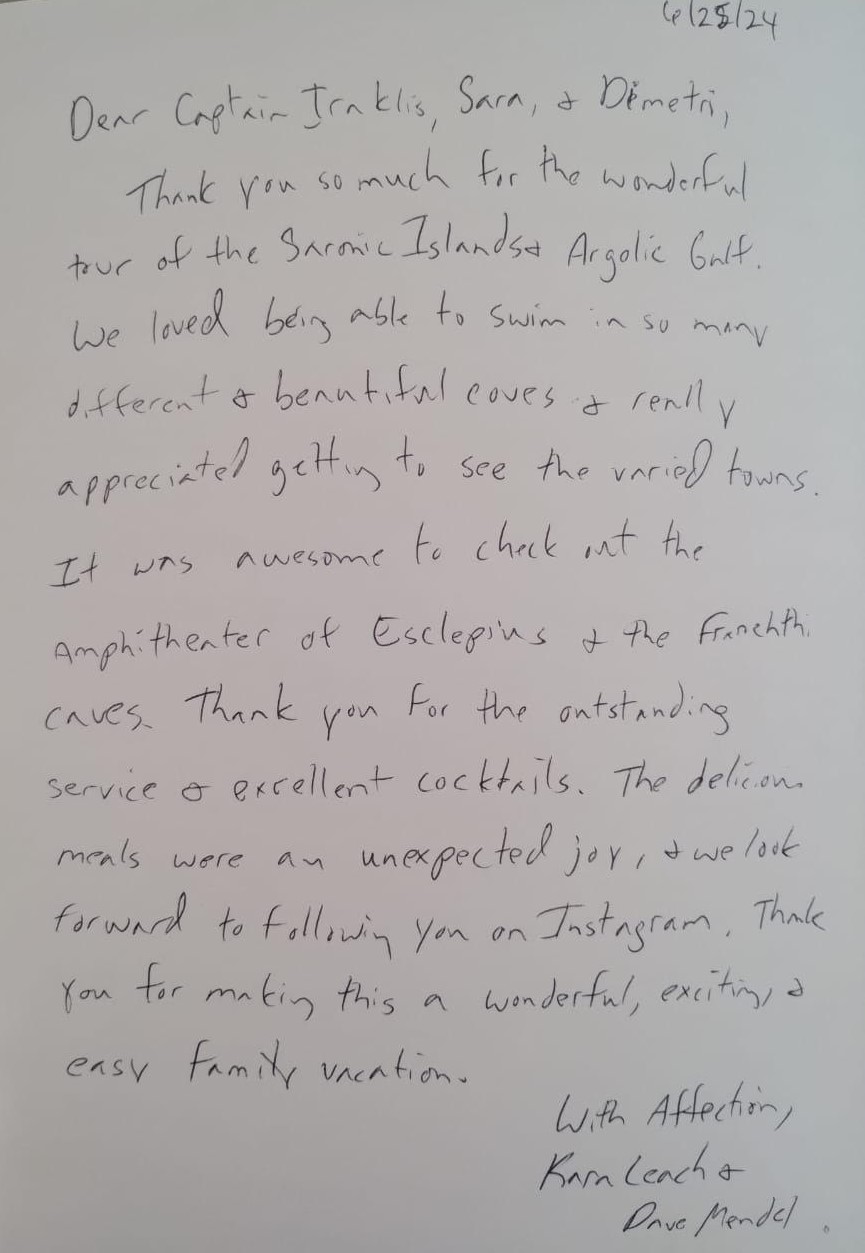 6/28/24
Dear Captain Iraklis, Sara, & Dimetri,
Thank you so much for the wonderful
tour of the Saronic Islands & Argolic Gulf.
We loved being able to swim in so many
different & beautiful coves & really
appreciated getting to see the varied towns.
It was awesome to check out the
Amphitheater of Esclepius & the Franchthi
caves. Thank you for the outstanding
service & excellent cocktails. The delicious
meals were an unexpected joy, & we look
forward to following you on Instagram. Thank
you for making this a wonderful, exciting, &
easy family vacation.
With Affection,
Kara Leach &
Dave Mendel